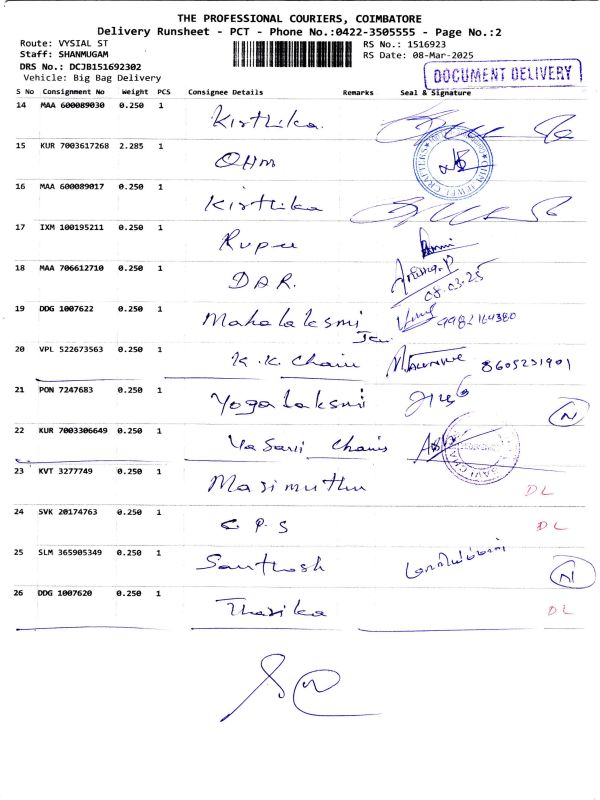 THE PROFESSIONAL COURIERS, COIMBATORE
Delivery Runsheet - PCT - Phone No.:0422-3505555 - Page No.:2
Route: VYSIAL ST RS No.: 1516923
Staff: SHANMUGAM RS Date: 08-Mar-2025
DRS No.: DCJB151692302
Vehicle: Big Bag Delivery
DOCUMENT DELIVERY
S No Consignment No Weight PCS Consignee Details Remarks Seal & Signature
14 MAA 600089030 0.250 1 Kirthika.
15 KUR 7003617268 2.285 1 OHM
16 MAA 600089017 0.250 1 Kirthika
17 IXM 100195211 0.250 1 Rupee
18 MAA 706612710 0.250 1 DAR.
08.03.25
19 DDG 1007622 0.250 1 Mahalaksmi 9982164380
20 VPL 522673563 0.250 1 K.K. Chain 8605231901
21 PON 7247683 0.250 1 Yogalaksmi N
22 KUR 7003306649 0.250 1 Vasavi Chains
23 KVT 3277749 0.250 1 Marimuthu DL
24 SVK 20174763 0.250 1 GPS DL
25 SLM 365905349 0.250 1 Santhosh N
26 DDG 1007620 0.250 1 Tharika DL